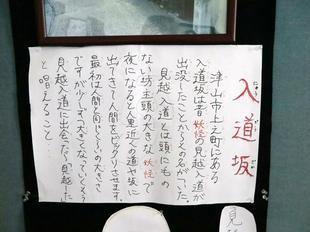 入道坂
にゅうどうざか
津山市上之町にある
入道坂は昔妖怪の見越入道が
出没したことからその名がついた。
見越入道とは頭にもの
ない坊主頭の大きな妖怪で
夜になると人里近くの道や坂に
出てきて人間をビックリさせます。
最初は人間と同じくらいの大きさ
ですが少しずつ大きくなっていくそう
見越入道に出会ったら「見越した」
と唱えること…
見